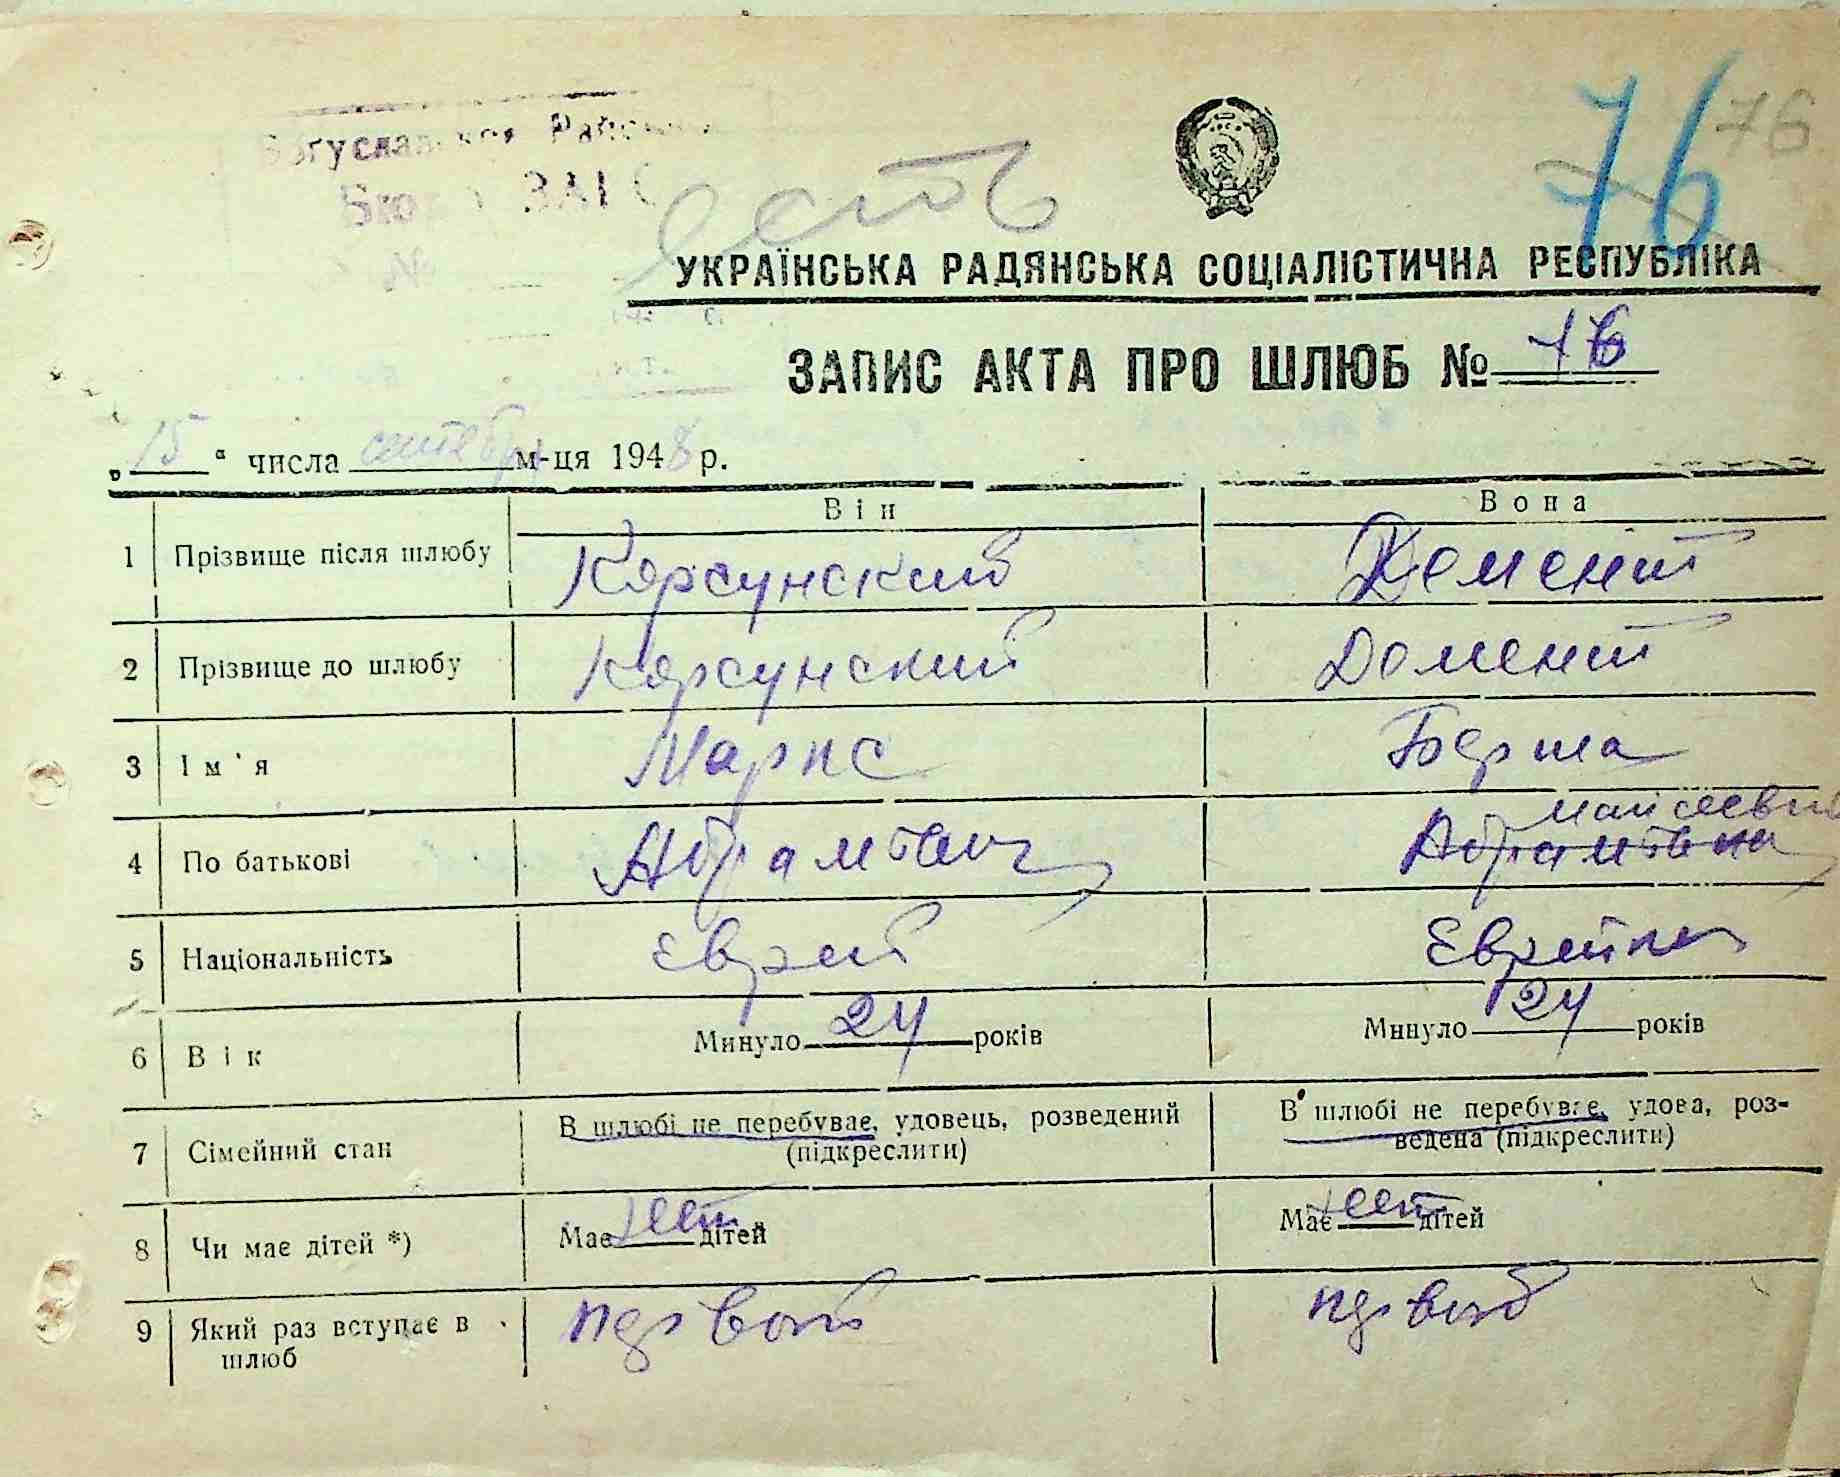 76 76
Бюро ЗАГС
№
есть
УКРАЇНСЬКА РАДЯНСЬКА СОЦІАЛІСТИЧНА РЕСПУБЛІКА
ЗАПИС АКТА ПРО ШЛЮБ № 76
„15“ числа сентября м-ця 1948 р.
Він Вона
1 Прізвище після шлюбу Корсунский Домент
2 Прізвище до шлюбу Корсунский Домент
3 Ім'я Маркс Берта
4 По батькові Абрамович Абрамовна Мойсеевна
5 Національність Еврей Еврейка
6 Вік Минуло 24 років Минуло 24 років
7 Сімейний стан В шлюбі не перебуває, удовець, розведений (підкреслити) В шлюбі не перебуває, удова, роз-
ведена (підкреслити)
8 Чи має дітей *) Має нет дітей Має нет дітей
9 Який раз вступає в шлюб первый первый